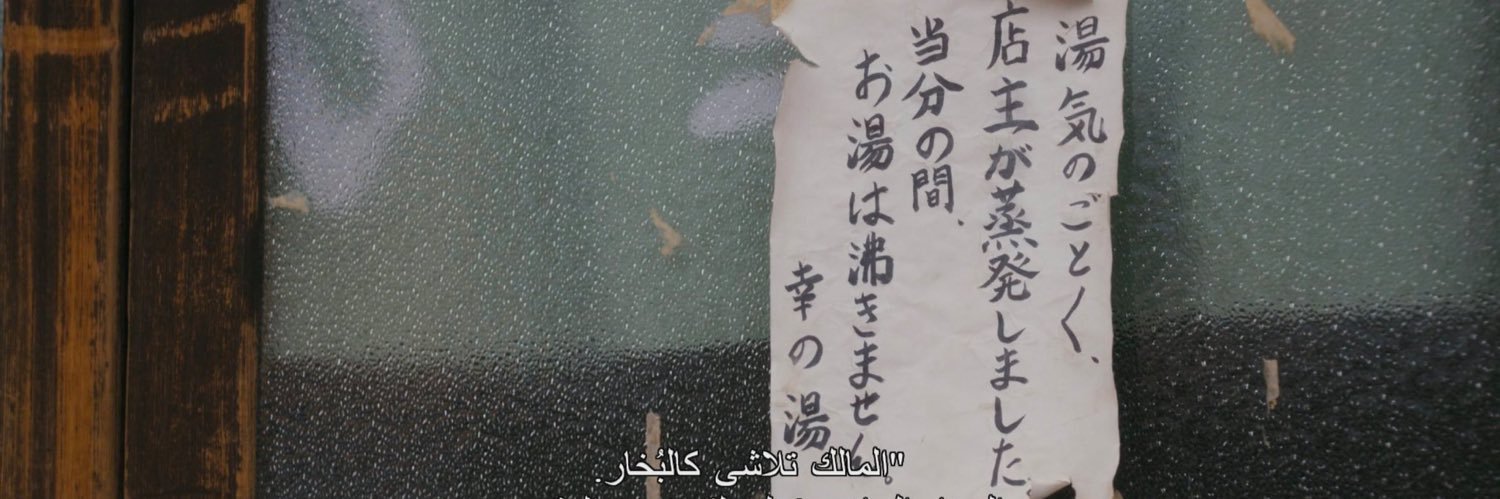 湯気のごとく、
店主が蒸発しました。
当分の間、
お湯は沸きません。
幸の湯
"المالك تلاشى كالبُخار.